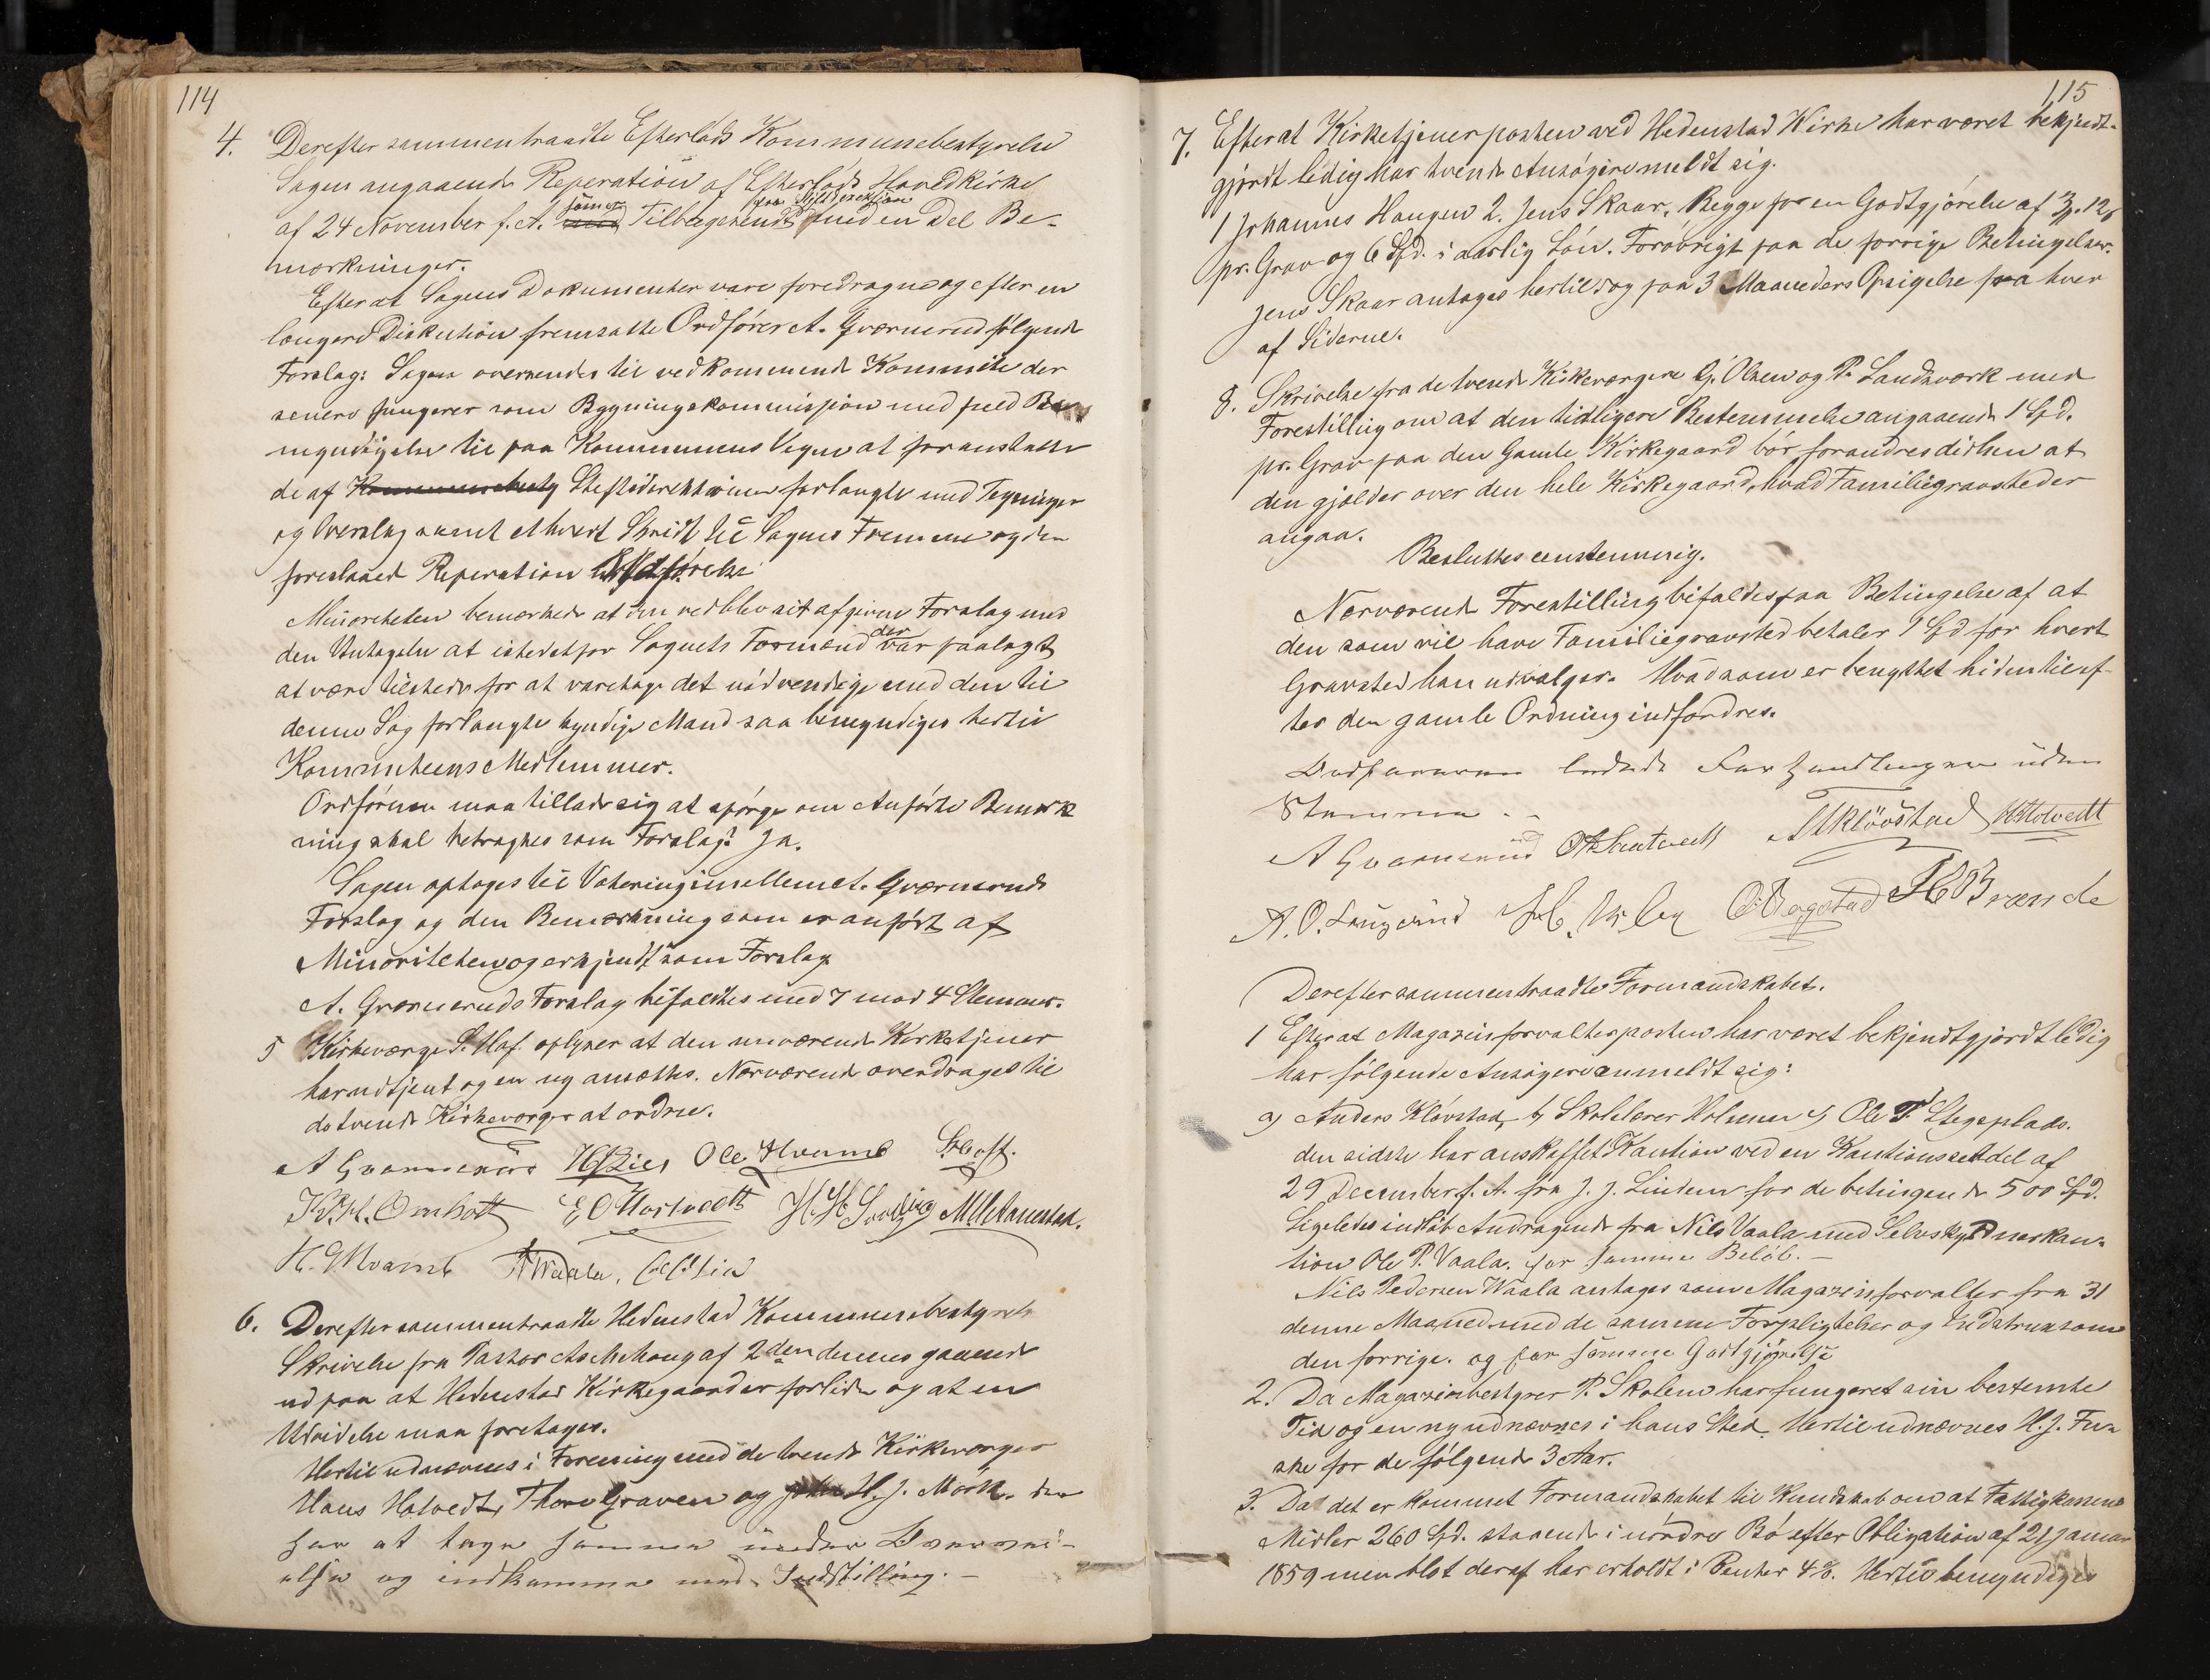 114
4. Derefter sammentraadte Efterløds Kommunebestyrelse
Sagen angaaende Reperation af Efterløds Hovedkirke
af 24 November f. A. samen Tilbagesendt fra Stiftdirektion med en Del Be-
mærkninger.
Efter at Sagens Dokumenter vare foredragne og efter en
længere Diskution fremsatte Ordfører A. Gværnerud følgende
Forslag: Sagen oversendes til vedkommende Kommite der
senere fungerer som Bygningskommission med fuld Be
myndigelse til paa Kommunens Vegne at foranstalte
de af Stiftsdirektionen forlangte med Tegninger
og Overslag samt ethvert Skridt til Sagens Fremme og den
foreslaaed Reperation
Minoriteten bemærkede at den vedblev sit afgivne Forslag med
den Undtagelse at istedetfor Sognets Formænd der var paalagt
at være tilstede for at varetage det nødvendige med den til
denne Sag forlangte kyndige Mand saa bemyndiges hertil
Kommiteens Medlemmer.
Ordføreren maa tillade sig at spørge om Anførte Bemærk
ning skal betragtes som Forslag? Ja.
Sagen optoges til Votering imellem A. Gværneruds
Forslag og den Bemærkning som er anført af
Minoriteten og erkjendt som Forslag
A. Gværneruds Forslag bifaldtes med 7 mod 4 Stemmer.
5 Kirkeværge S. Hof. oplyser at den nuværende Kirketjener
har udtjent og en ny ansættes. Nærværende overdrages til
de tvende Kirkeværger at ordne.
A Gvarnerud Ole Hvamb S. Hoff.
K. H. Omholt E O Hostvedt
H. G Hvamb Waala. Lia
6. Derefter sammentraadte Hedenstad Kommunebestyrelse
Skrivelse fra Pastor Aschehoug af 2den dennes gaaende
ud paa at Hedenstad Kirkegaard er forliden og at en
Udvidelse maa foretages.
Hertil udnævnes i Forening med de tvende Kirkeværger
Hans Holvedt, Thore Graven og H. J. Mørk. der
har at tage samme under Overvei-
else og indkomme med Indstilling. –
115
7. Efterat Kirketjenerposten ved Hedenstad Kirke har været bekjendt-
gjordt ledig har tvende Ansøgere meldt sig.
1 Johannes Haugen 2. Jens Skaar. Begge for en Godtgjørelse af 3 . 12
pr. Grav og 6 Spd. i aarlig Løn. Forøvrigt paa de forrige Betingelser.
Jens Skaar antages hertil og paa 3 Maaneders Opsigelse fra hver
af Siderne.
8. Skrivelse fra de tvende Kirkeværgere G. Olsen og P. Landsværk med
Forestilling om at den tidligere Bestemmelse angaaende 1 Spd.
pr. Grav paa den Gamle Kirkegaard bør forandres dithen at
den gjælder over den hele Kirkegaard, hvad Familiegravsteder
angaa.
Besluttes eenstemmig.
Nærværende Forestilling bifaldes paa Betingelse af at
den som vil have Familiegravsted betaler 1 Spd for hvert
Gravsted han udvælger. Hvad som er benyttet hidentil ef-
ter den gamle Ordning indfordres.
Ordføreren ledede Forhandlingen uden
Stemme. –
A Gvarnerud A Kløvstad Holtvedt
A. O. Langerud O. Bogstad H Brænde
Derefter sammentraadte Formandskabet.
1 Efterat Magazinforvalterposten har været bekjendtgjordt ledig
har følgende Ansøgere anmeldt sig:
a) Anders Kløvstad, b) Skolelærer Holmen c) Ole T. Stegeplads.
den sidste har anskaffet Kaution ved en Kautionsseddel af
29 December f. A. fra J. J. Linden for de betingende 500 Spd.
Ligeledes indløb Andragende fra Nils Vaala med Selvskyldnerkau-
tion Ole P. Vaala. for samme Beløb. –
Nils Pedersen Waala antages som Magazinforvalter fra 31
denne Maaned med de samme Forpligtelser og Indstrux som
den forrige. og for samme Godtgjørelse
2. Da Magazinbestyrer P. Skolen har fungeret sin bestemte
Tid og en ny udnævnes i hans Sted. Hertil udnævnes H. J. Fu-
ske for de følgende 3 Aar.
3. Da det er kommet Formandskabet til Kundskab om at Fattigkassens
Midler 260 Spd. staaende i nordre Bø efter Obligation af 21 Januar
1859 men blot deraf har erholdt i Renter 4%. Hertil bemyndiges